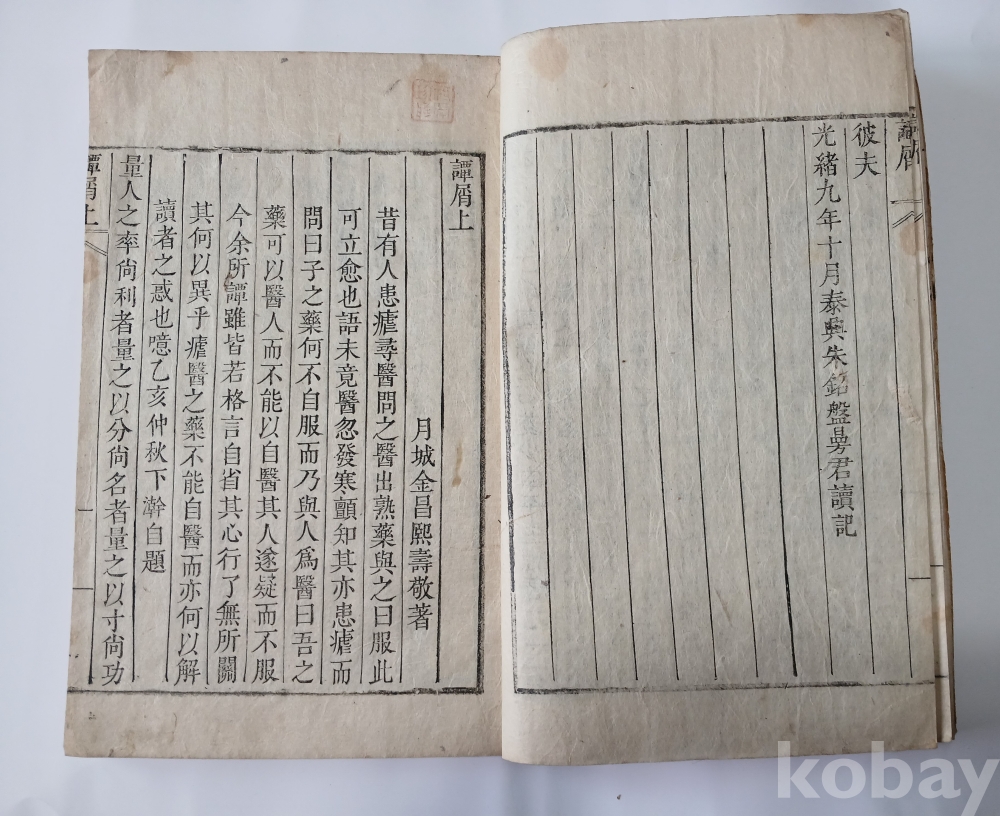 譚屑
彼夫
光緒九年十月泰興朱銘盤曼君讀記
譚屑上
月城金昌熙壽敬著
昔有人患瘧尋醫問之醫出熟藥與之曰服此
可立愈也語未竟醫忽發寒顫知其亦患瘧而
問曰子之藥何不自服而乃與人爲醫曰吾之
藥可以醫人而不能以自醫其人遂疑而不服
今余所譚雖皆若格言自省其心行了無所關
其何以異乎瘧醫之藥不能自醫而亦何以解
讀者之惑也噫乙亥仲秋下澣自題
量人之率尙利者量之以分尙名者量之以寸尙功
譚屑上
kobay